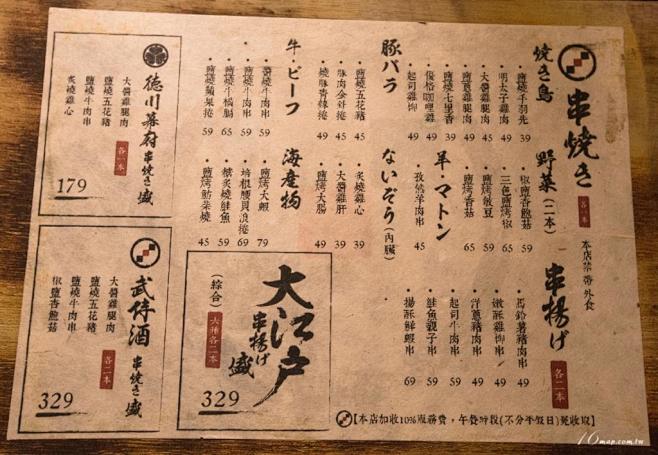 串焼き 各一本
焼き鳥
鹽燒手羽先 39
明太子雞肉 49
大醬雞腿肉 45
鹽蔥雞腿肉 49
鹽燒七里香 39
優格咖哩雞 49
起司雞柳 49
豚バラ
鹽燒五花豬 45
豚肉金針捲 45
燒豚青蔥捲 49
牛・ビーフ
醬燒牛肉串 59
鹽燒牛肉串 59
鹽燒牛橫膈 65
鹽燒蘋果捲 59
野菜(二本)
椒鹽杏鮑菇 59
三色鹽烤椒 65
鹽烤敏豆 59
鹽烤香菇 65
羊・マトン
孜然羊肉串 45
ないぞう(內臟)
炙燒雞心 39
大醬雞肝 39
鹽烤大腸 49
海産物
鹽烤大蝦 79
培根腰貝浪捲 69
糖炙燒鮭魚 59
鹽烤魴朵燒 45
本店禁帶外食
串揚げ 各二本
馬鈴薯豬肉串 49
嫩酥雞柳串 49
洋蔥豬肉串 49
起司牛肉串 59
鮭魚親子串 59
揚酥鮮蝦串 69
大江戸
串揚げ盛
(綜合)
六種各二本
329
徳川幕府 串焼き盛
大醬雞腿肉
鹽燒五花豬
鹽燒牛肉串
炙燒雞心
各一本
179
武侍酒 串焼き盛
大醬雞腿肉
鹽燒五花豬
鹽燒牛肉串
椒鹽杏鮑菇
各二本
329
【本店加收10%服務費，午餐時段(不分平假日)免收取】
10map.com.tw